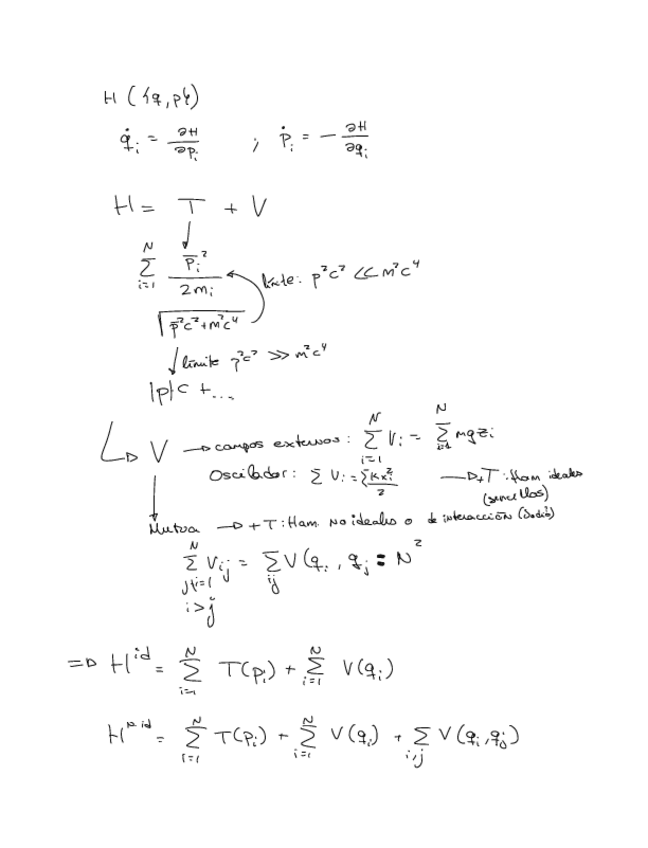 H ({q,p})
q̇ᵢ = ∂H/∂pᵢ ; ṗᵢ = − ∂H/∂qᵢ
H = T + V
↓
∑_{i=1}^{N} p̄ᵢ²/2mᵢ
límite: p²c² << m²c⁴
√(p̄²c²+m²c⁴)
↓ límite p²c² >> m²c⁴
|p|c + ...
↳ V → campos externos: ∑_{i=1}^{N} Vᵢ = ∑_{i=1}^{N} mgzᵢ
Oscilador: ∑ Vᵢ = ∑ kxᵢ²/2 → +T : Ham ideales
(sencillos)
Mutua → + T : Ham. No ideales o de interacción
∑_{j,i=1}^{N} Vᵢⱼ = ∑_{ij} V(qᵢ, qⱼ = N²
i>j
⇒ H^{id} = ∑_{i=1}^{N} T(pᵢ) + ∑_{i=1}^{N} V(qᵢ)
H^{n id} = ∑_{i=1}^{N} T(pᵢ) + ∑_{i=1}^{N} V(qᵢ) + ∑_{i,j} V(qᵢ,qⱼ)